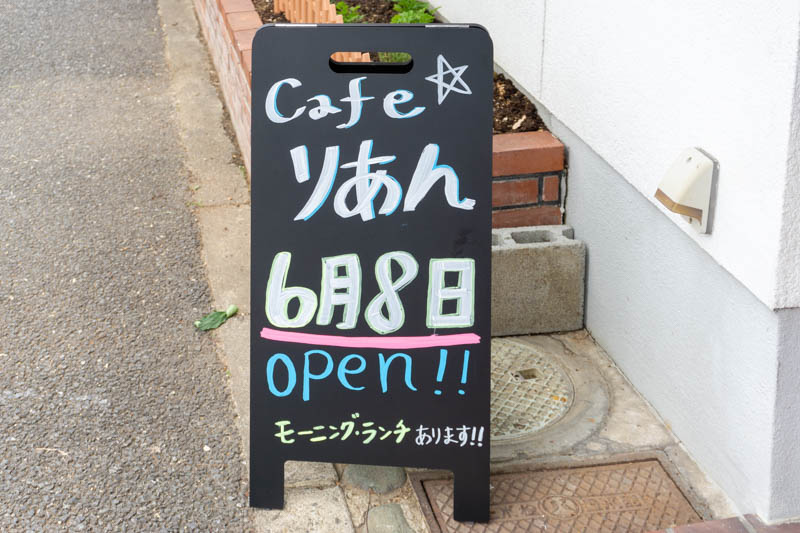 Cafe☆
りあん
6月8日
open!!
モーニング・ランチあります!!